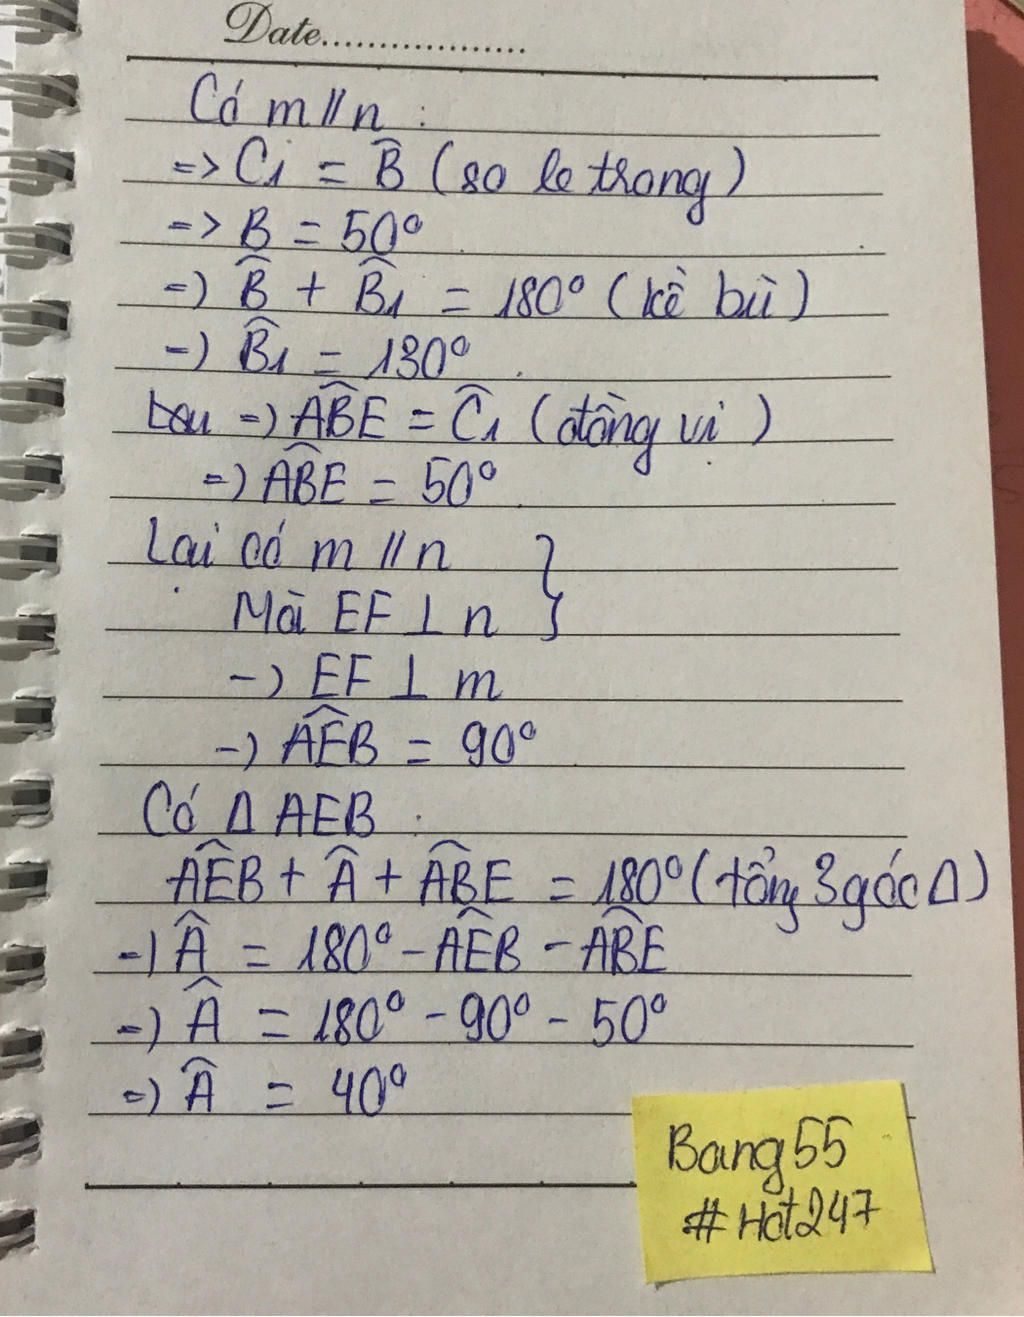 Date...................
Có m // n :
=> C1 = B̂ (so le trong)
=> B = 50°
=) B̂ + B̂1 = 180° (kề bù)
=) B̂1 = 130°
=) ABE = Ĉ1 (đồng vị)
=) ABE = 50°
Lại có m // n }
Mà EF ⊥ n
-) EF ⊥ m
-) AEB = 90°
Có Δ AEB :
AEB + Â + ABE = 180° (tổng 3 góc Δ)
=) Â = 180° - AEB - ABE
=) Â = 180° - 90° - 50°
=) Â = 40°
Bang55
#Hot247